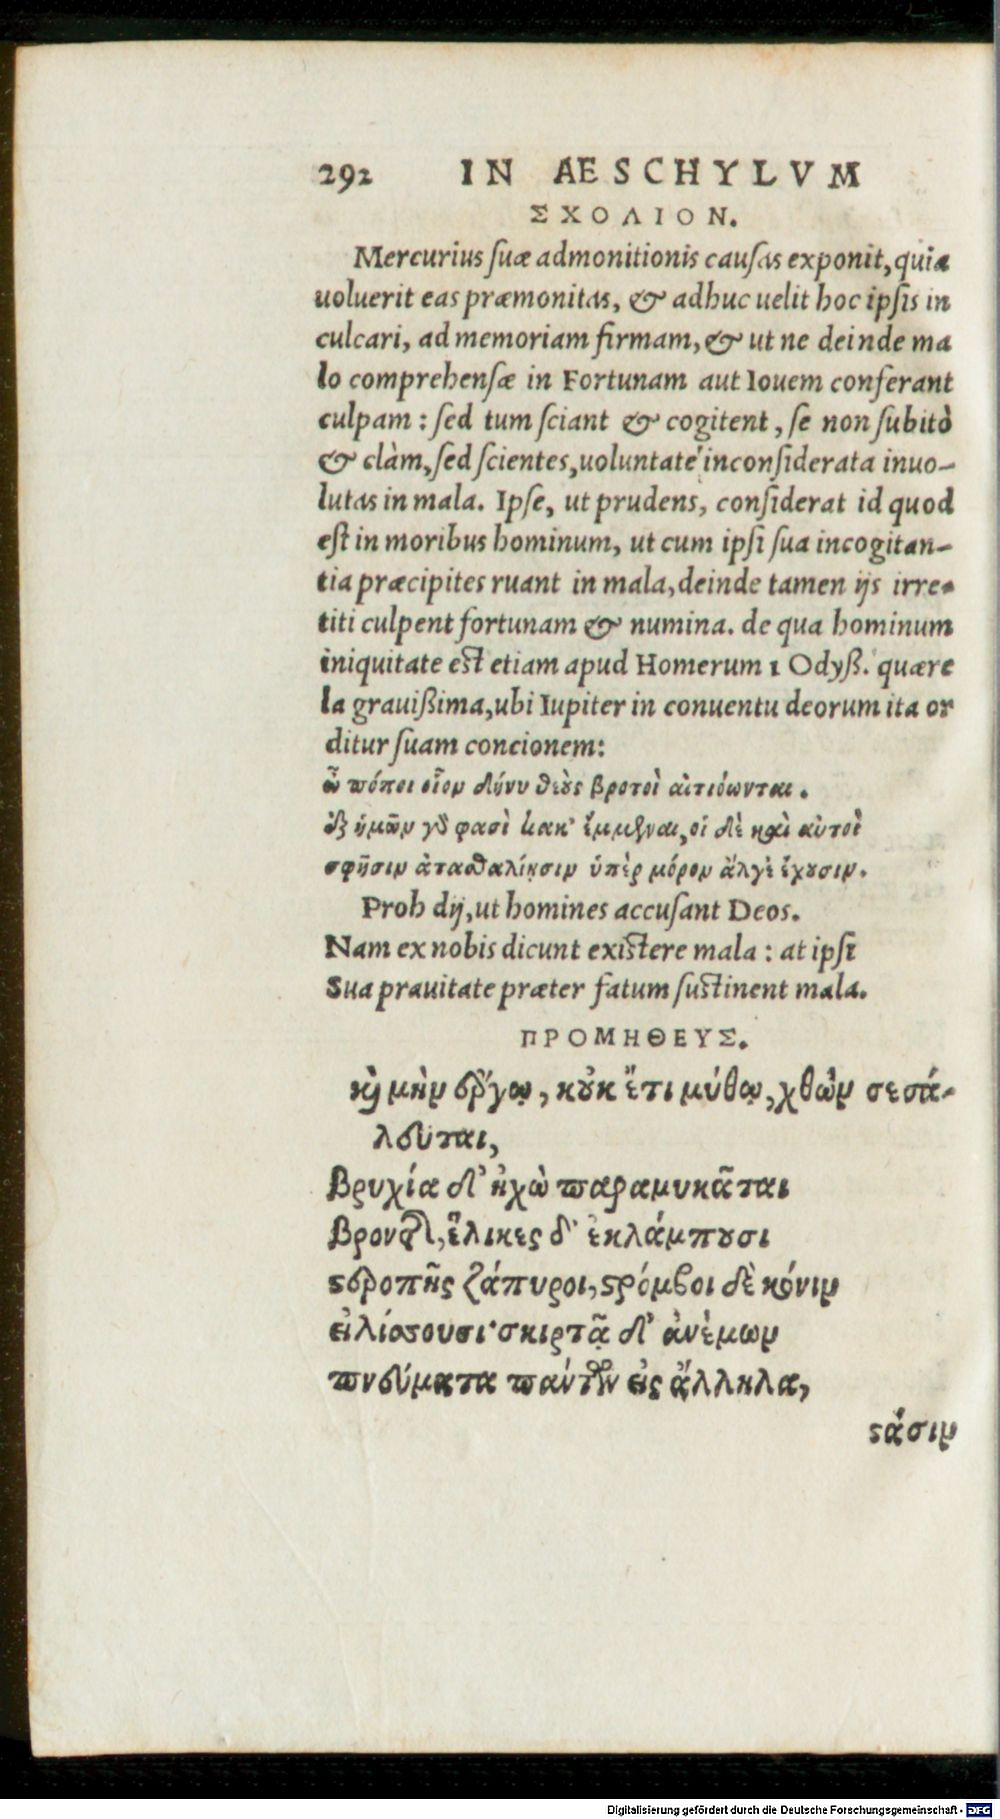 292 IN AESCHYLVM
ΣΧΟΛΙΟΝ.
Mercurius suæ admonitionis causas exponit, quia
uoluerit eas præmonitas, & adhuc uelit hoc ipsis in
culcari, ad memoriam firmam, & ut ne deinde ma
lo comprehensæ in Fortunam aut Iouem conferant
culpam: sed tum sciant & cogitent, se non subitò
& clàm, sed scientes, uoluntate inconsiderata inuo-
lutas in mala. Ipse, ut prudens, considerat id quod
est in moribus hominum, ut cum ipsi sua incogitan-
tia præcipites ruant in mala, deinde tamen ijs irre-
titi culpent fortunam & numina. de qua hominum
iniquitate est etiam apud Homerum 1 Odyß. quære
la grauißima, ubi Iupiter in conuentu deorum ita or
ditur suam concionem:
ὦ πόποι οἷον δήνυ θεοὺς βροτοὶ αἰτιόωνται.
ἐξ ἡμῶν γὰ φασὶ κακ' ἔμμεναι, οἱ δὲ καὶ αὐτοὶ
σφῇσιν ἀτασθαλίῃσιν ὑπὲρ μόρον ἄλγὲ ἔχουσιν.
Proh dij, ut homines accusant Deos.
Nam ex nobis dicunt existere mala: at ipsi
Sua prauitate præter fatum sustinent mala.
ΠΡΟΜΗΘΕΥΣ.
καὶ μὴν ἔργῳ, κοὐκ ἔτι μύθῳ, χθὼν σεσά-
λευται,
βρυχία δ' ἠχὼ παραμυκᾶται
βροντῆς, ἕλικες δ' ἐκλάμπουσι
στεροπῆς ζάπυροι, στρόμβοι δὲ κόνιν
εἰλίσσουσι· σκιρτᾷ δ' ἀνέμων
πνεύματα πάντων εἰς ἄλληλα,
στάσιν
Digitalisierung gefördert durch die Deutsche Forschungsgemeinschaft - DFG